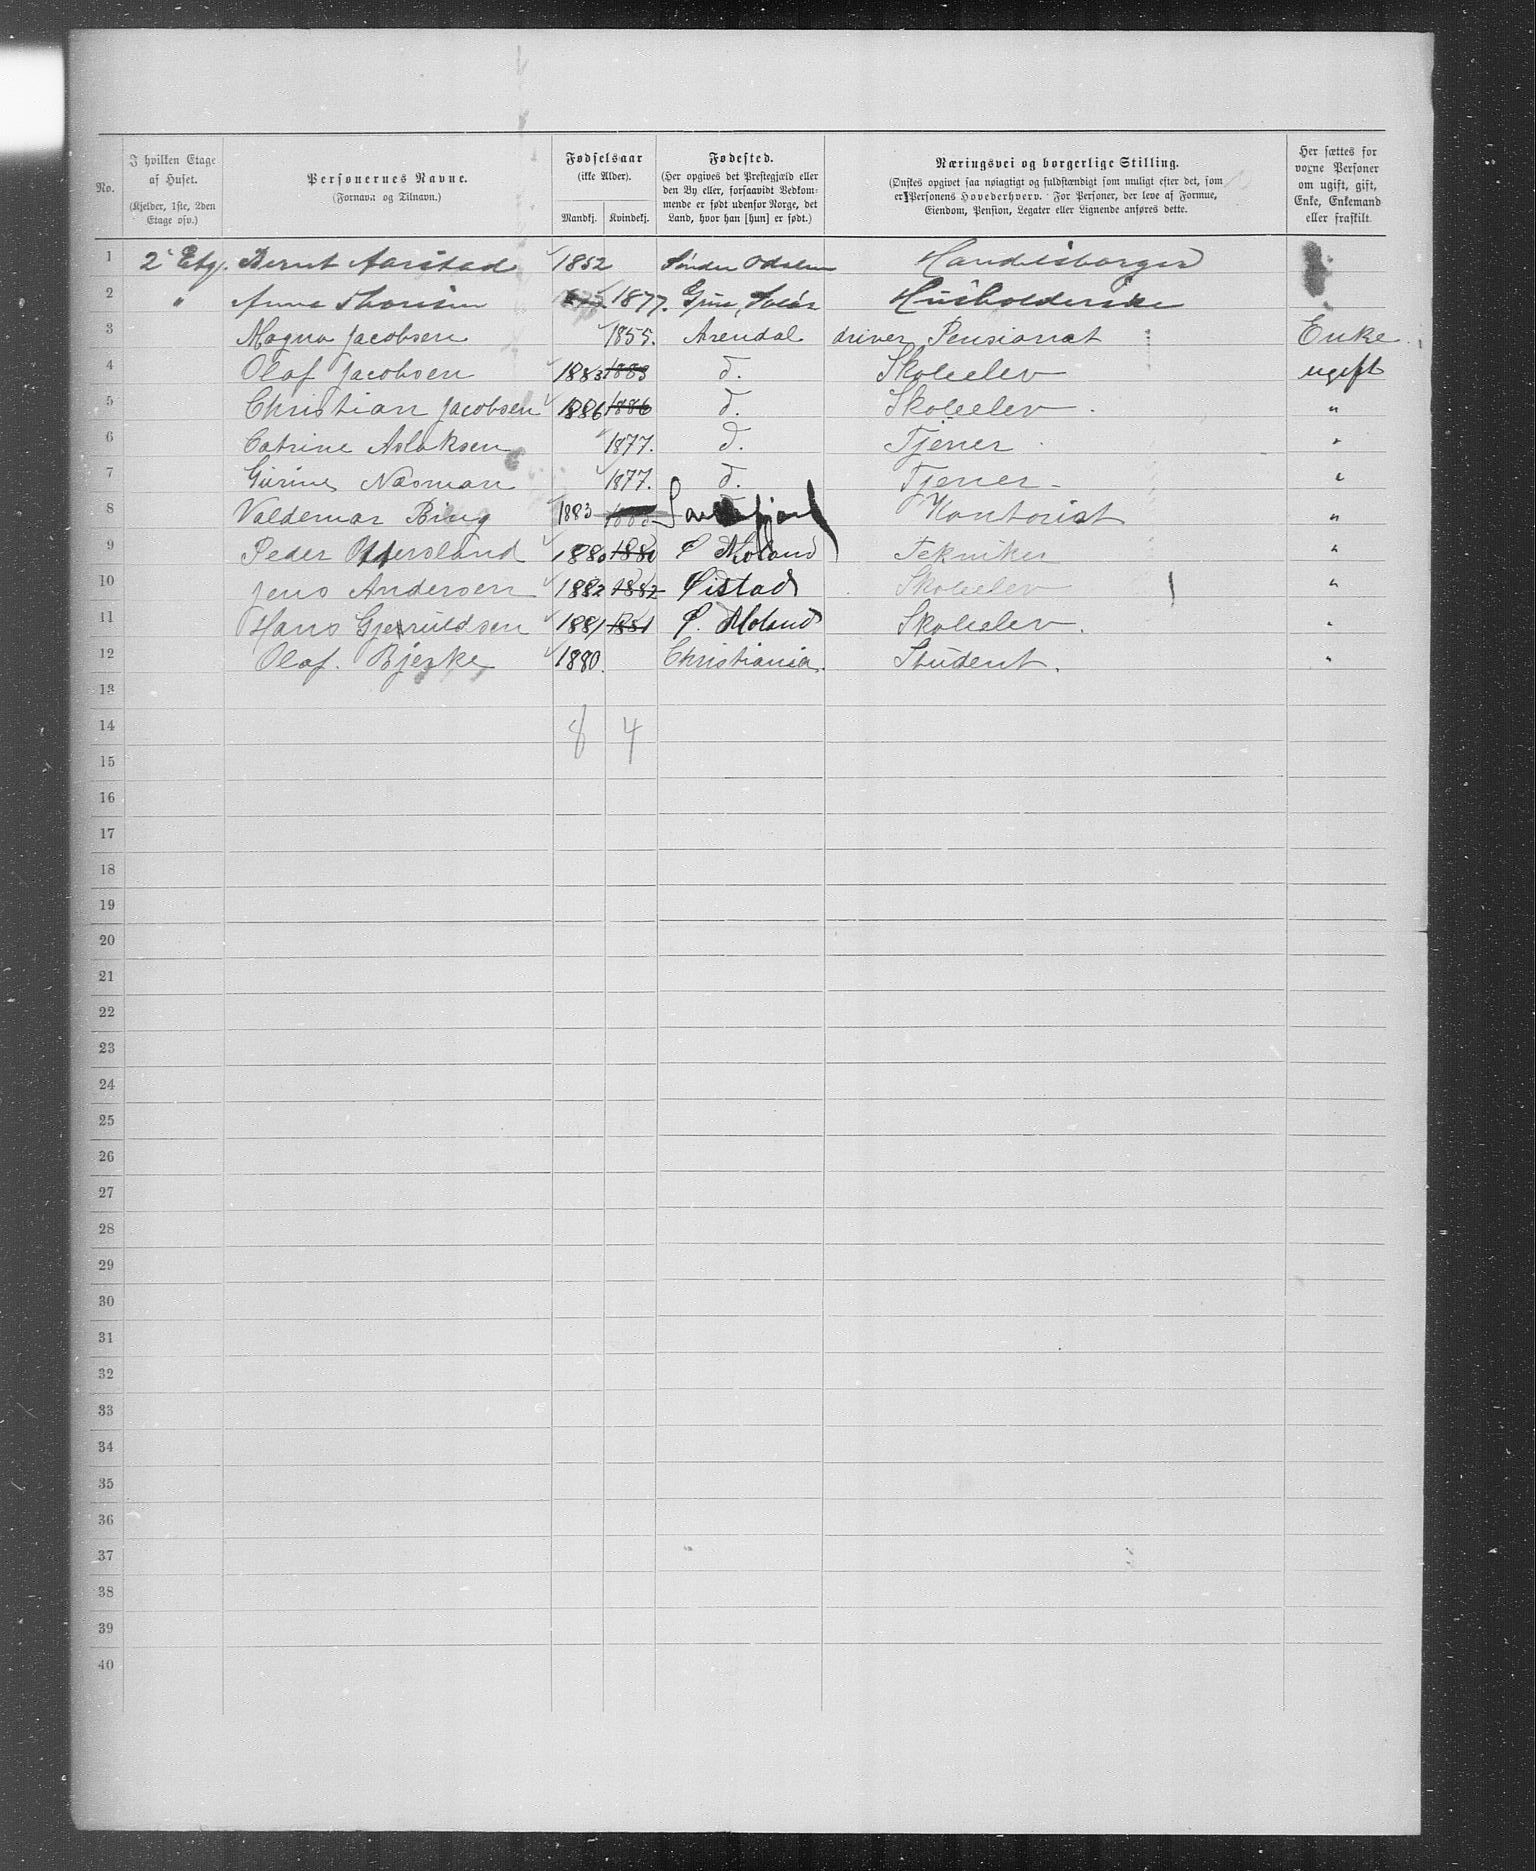 No.
I hvilken Etage af Huset. (Kjelder, 1ste, 2den Etage osv.)
Personernes Navne. (Fornavn og Tilnavn.)
Fødselsaar (ikke Alder). Mandkj. Kvindekj.
Fødested. (Her opgives det Prestegjæld eller den By eller, forsaavidt Vedkommende er født udenfor Norge, det Land, hvor han [hun] er født.)
Næringsvei og borgerlige Stilling. (Ønskes opgivet saa nøiagtigt og fuldstændigt som muligt efter det, som er Personens Hovederhverv. For Personer, der leve af Formue, Eiendom, Pension, Legater eller Lignende anføres dette.)
Her sættes for voxne Personer om ugift, gift, Enke, Enkemand eller fraskilt.
1 2 Etg. Bernt Aarstad 1852 Søndre Odalen Handelsborger
2 " Anna Thorisen 1877. Grue, Solør Husholderske
3 Magna Jacobsen 1855. Arendal driver Pensionat Enke
4 Olaf Jacobsen 1883 1883 d. Skoleelev ugift
5 Christian Jacobsen 1886 1886 d. Skoleelev. "
6 Catrine Aslaksen 1877. d. Tjener "
7 Gurine Næsman 1877. d. Tjener - "
8 Valdemar Bing 1883 Kontorist "
9 Peder Ottersland 1880 1880 Ø Moland Tekniker "
10 Jens Andersen 1882 1882 Øistad Skoleelev "
11 Hans Gjeruldsen 1881 1881 Ø. Moland Skoleelev. "
12 Olaf. Bjerke 1880. Christiania. Student. "
13
14 8 4
15
16
17
18
19
20
21
22
23
24
25
26
27
28
29
30
31
32
33
34
35
36
37
38
39
40